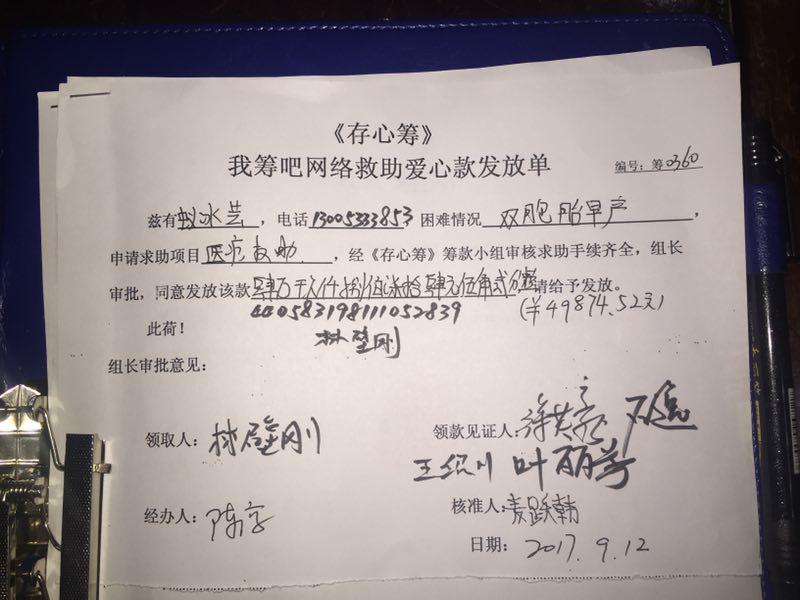 《存心筹》
我筹吧网络救助爱心款发放单
编号：筹0360
兹有 冰芸，电话13005333853，困难情况 双胞胎早产，
申请求助项目医疗救助，经《存心筹》筹款小组审核求助手续齐全，组长
审批，同意发放该款肆万 仟捌佰柒拾肆元伍角贰分 请给予发放。
440583198111052839 (￥49874.52元)
此荷！
林壁刚
组长审批意见：
领取人：林壁刚 领款见证人：
王绍川 叶丽芳
经办人：陈 核准人：
日期：2017.9.12